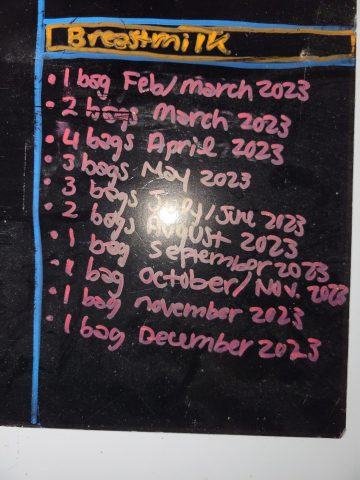 Breastmilk
• 1 bag Feb/march 2023
• 2 bags March 2023
• 4 bags April 2023
• 3 bags May 2023
• 3 bags July/June 2023
• 2 bags August 2023
• 1 bag September 2023
• 1 bag October/Nov. 2023
• 1 bag november 2023
• 1 bag December 2023